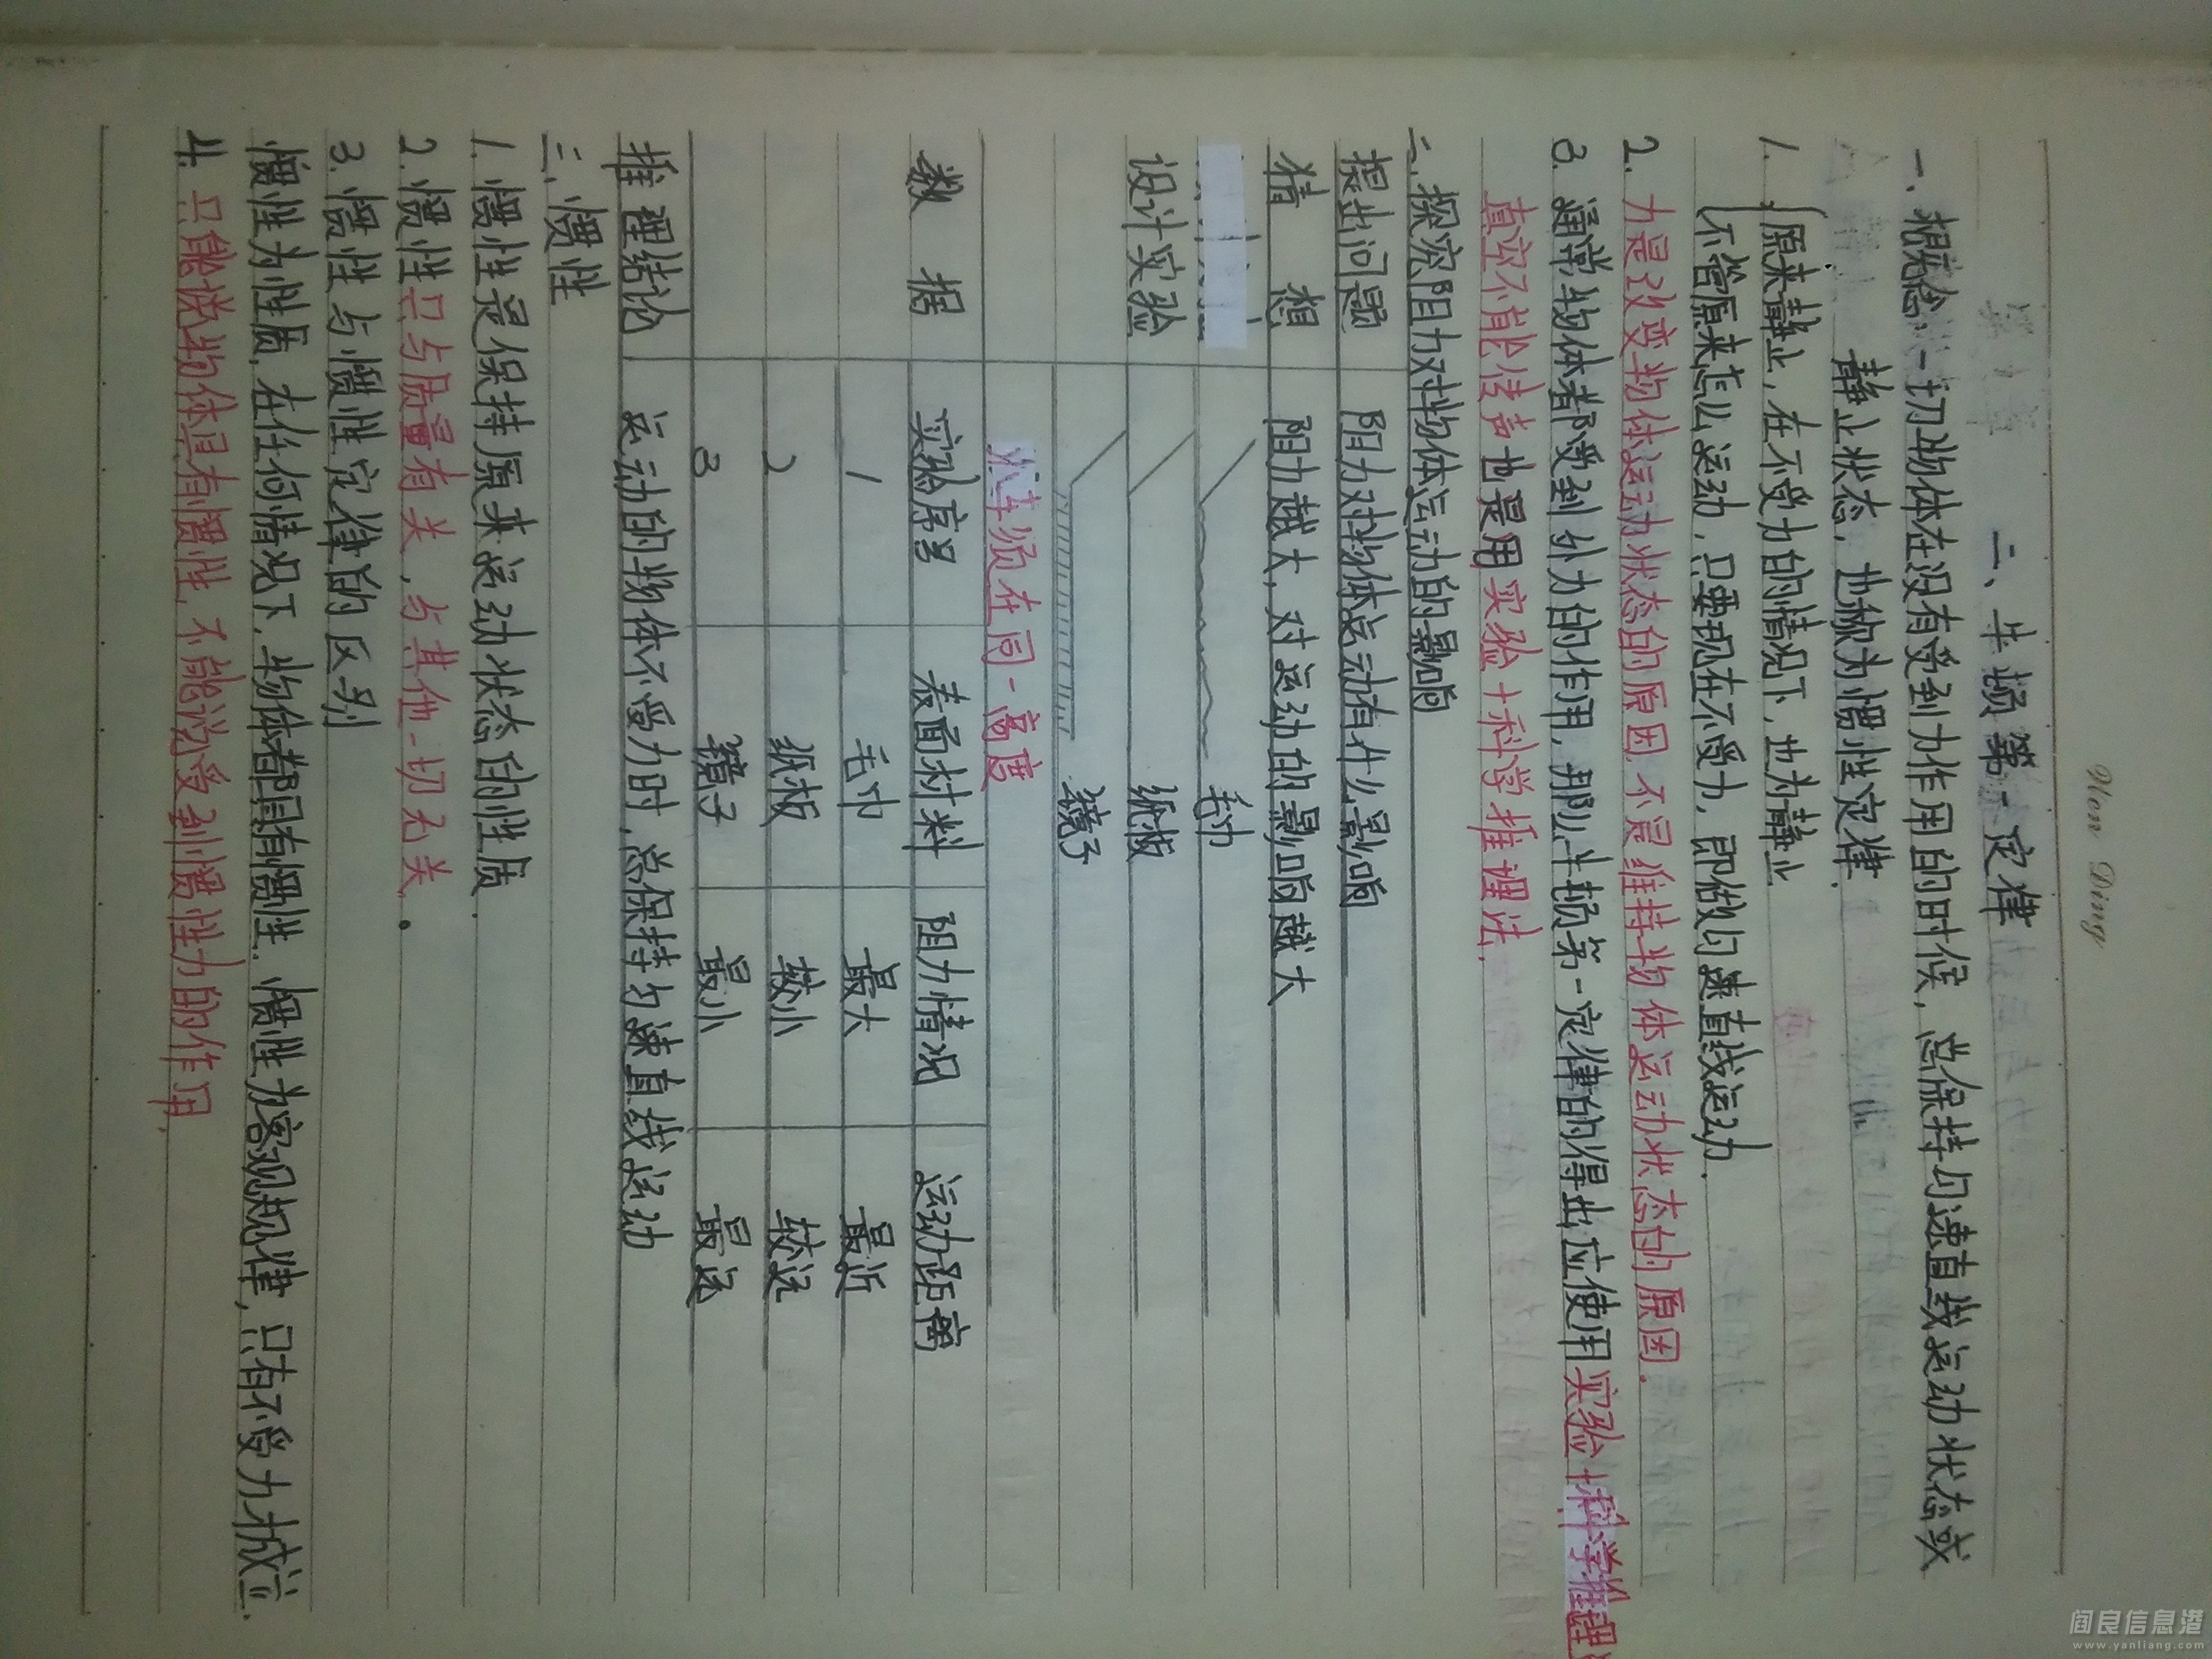 Wen Ding
二、牛顿第一定律
一、概念:一切物体在没有受到力作用的时候,总保持匀速直线运动状态或
静止状态,也称为惯性定律.
1.{原来静止,在不受力的情况下,也为静止
不管原来怎么运动,只要现在不受力,即做匀速直线运动.
2.力是改变物体运动状态的原因,不是维持物体运动状态的原因.
3.通常物体都受到外力的作用,那么牛顿第一定律的得出应使用实验+科学推理
真空不能传声也是用实验+科学推理法.
二.探究阻力对物体运动的影响
提出问题 阻力对物体运动有什么影响
猜想 阻力越大,对运动的影响越大
毛巾
设计实验 纸板
镜子
小车须在同一高度
数据 实验序号 表面材料 阻力情况 运动距离
1 毛巾 最大 最近
2 纸板 较小 较远
3 镜子 最小 最远
推理结论 运动的物体不受力时,总保持匀速直线运动
三、惯性
1.惯性是保持原来运动状态的性质.
2.惯性只与质量有关,与其他一切无关。
3.惯性与惯性定律的区别
惯性为性质,在任何情况下,物体都具有惯性.惯性为客观规律,只有不受力才成立.
4.只能说物体具有惯性,不能说受到惯性力的作用.
阎良信息港
www.yanliang.com